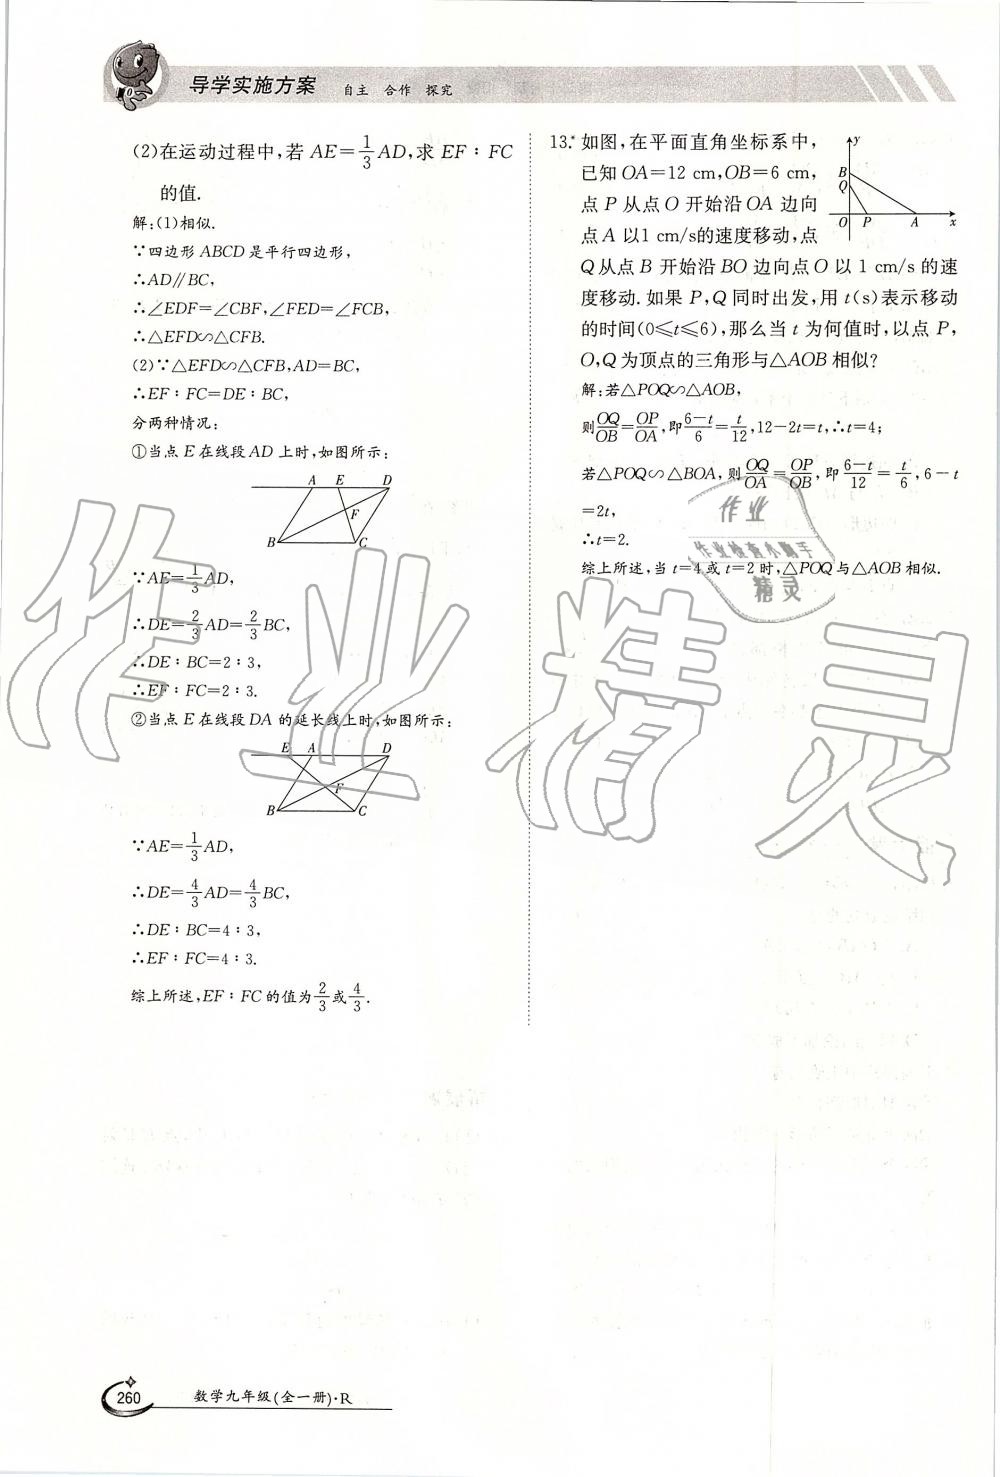 导学实施方案 自主 合作 探究
(2)在运动过程中,若 AE=1/3AD,求 EF∶FC
的值.
解:(1)相似.
∵四边形 ABCD 是平行四边形,
∴AD∥BC,
∴∠EDF=∠CBF,∠FED=∠FCB,
∴△EFD∽△CFB.
(2)∵△EFD∽△CFB,AD=BC,
∴EF∶FC=DE∶BC,
分两种情况:
①当点 E 在线段 AD 上时,如图所示:
A E D
F
B C
∵AE=1/3AD,
∴DE=2/3AD=2/3BC,
∴DE∶BC=2∶3,
∴EF∶FC=2∶3.
②当点 E 在线段 DA 的延长线上时,如图所示:
E A D
F
B C
∵AE=1/3AD,
∴DE=4/3AD=4/3BC,
∴DE∶BC=4∶3,
∴EF∶FC=4∶3.
综上所述,EF∶FC 的值为2/3或4/3.
13.* 如图,在平面直角坐标系中,
已知 OA=12 cm,OB=6 cm,
点 P 从点 O 开始沿 OA 边向
点 A 以1 cm/s的速度移动,点
Q 从点 B 开始沿 BO 边向点 O 以 1 cm/s 的速
度移动.如果 P,Q 同时出发,用 t(s)表示移动
的时间(0≤t≤6),那么当 t 为何值时,以点 P,
O,Q 为顶点的三角形与△AOB 相似?
y
B
Q
O P A x
解:若△POQ∽△AOB,
则OQ/OB=OP/OA,即(6-t)/6=t/12,12-2t=t,∴t=4;
若△POQ∽△BOA,则OQ/OA=OP/OB,即(6-t)/12=t/6,6-t
=2t,
∴t=2.
综上所述,当 t=4 或 t=2 时,△POQ 与△AOB 相似.
作业
作业检查小助手
精灵
作业精灵
260 数学九年级(全一册)·R